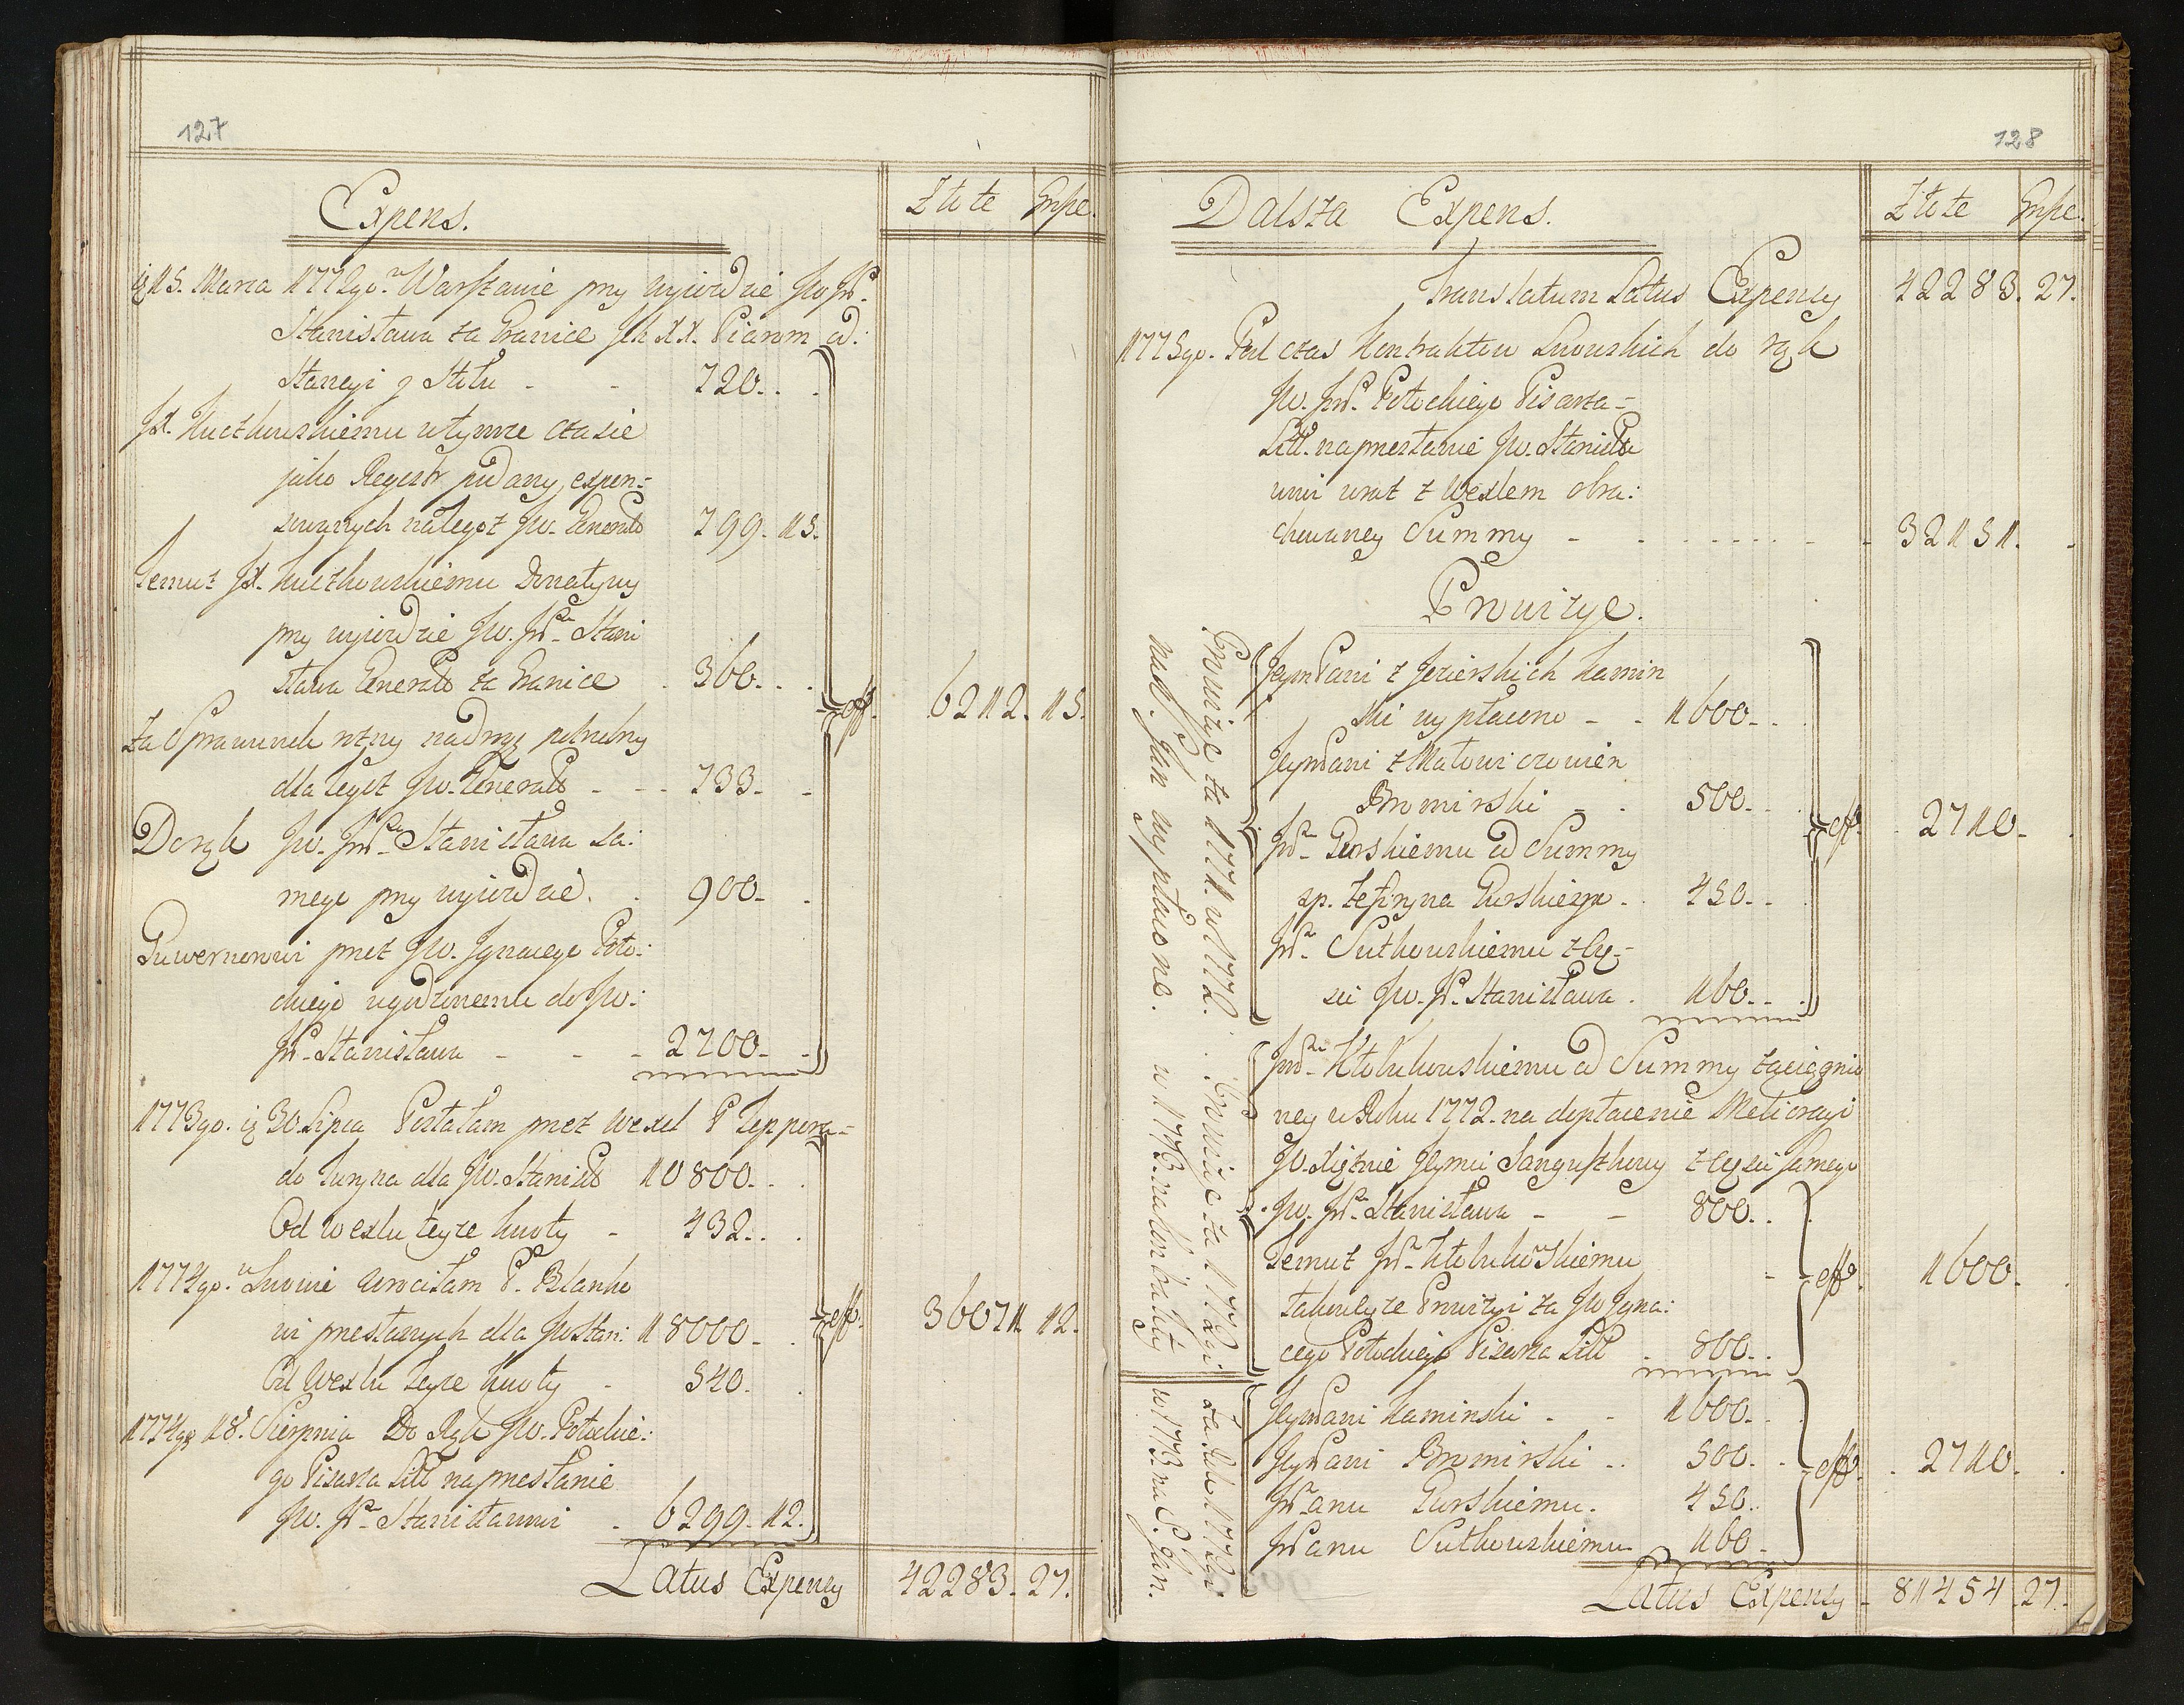 127
Expens. Złote Grosze.
15. Marca 1772go. w Warszawie przy wyieździe JW. JP.
Stanisława za Granicę JX. XX. Piarom od
Stancyi y Stołu - - 720.
JX. Kuczkowskiemu w tymże czasie
jako Regestr podany, expen=
sowanych na tegoż JW. Generała 799. 15.
Temuż JX. Kuczkowskiemu Donatywy
przy wyieździe JW. JPa. Stani
sława Generała za Granicę 360.
Za Sprawunek różny nadrogę potrzebny
dla tegoż JW. Generała - - 733. -
Do rąk JW. JPa. Stanisława sa:
mego przy wyieździe. 900. -
Guwernerowi przez JW. Ignacego Poto:
ckiego ugodzonemu do JW:
JPa. Stanisława - - - 2700. -
eff. 6212. 15.
1773go. 30. Lipca Posłałam przez Wexel P. Teppera=
do Turyna dla JW. Stanisła 10800.
Od Wexlu teyże kwoty - 432.
1774go. w Lwowie wróciłam P. Blanko
wi przesłanych dla JW. Stani: 18000.
Od Wexlu teyże kwoty - 540.
1774go 18. Sierpnia Do Rąk JW. Potockie:
go Pisarza Litt. na przesłanie
JW. JPa. Stanisławowi - 6299. 12.
eff. 36071. 12.
Latus Expensy 42283. 27.
128
Dalsza Expens. Złote Grosze.
Translatum Latus Expensy 42283. 27.
1775go. Pod czas Kontraktow Lwowskich do rąk
JW. JPa. Potockiego Pisarza=
Litt. na przesłanie JW. Stanisła
wowi wraz z Wexlem obra:
chowaney Summy - 32151. -
Prowizye.
Prowizye za 1771. w 1772.
na S. Jan wypłacone.
JeymPani z Jezierskich Kamin
ski wypłacono - - 1600.
JeymPani z Matowiczowien
Bromirski - - 500.
JPa. Gurskiemu od Summy
sp. Zefiryna Gurskiego - 450.
JPa. Sutkowskiemu z Czę=
ści JW. JPa. Stanisława. 160.
eff. 2710.
Prowizye za 1772gi
w 1773. na kontrakty
JPa. Kłobukowskiemu od Summy zaciągnio
ney w Roku 1772. na dopłacenie Melioracyi
JO. Xiężnie Jeymci Sanguszkowy z Części samego
JW. JPa. Stanisława - - 800.
Temuż JPa. Kłobukowskiemu
takoweyże Prowizyi za JW. Igna:
cego Potockiego Pisarza Litt. 800.
eff. 1600.
za Rok 1772gi
w 1773. na S. Jan.
JeyPani Kaminski - - 1600.
JeyPani Bromirski - 500.
JPanu Gurskiemu. 450.
JPanu Sutkowskiemu 160.
eff. 2710.
Latus Expensy - 81454. 27.